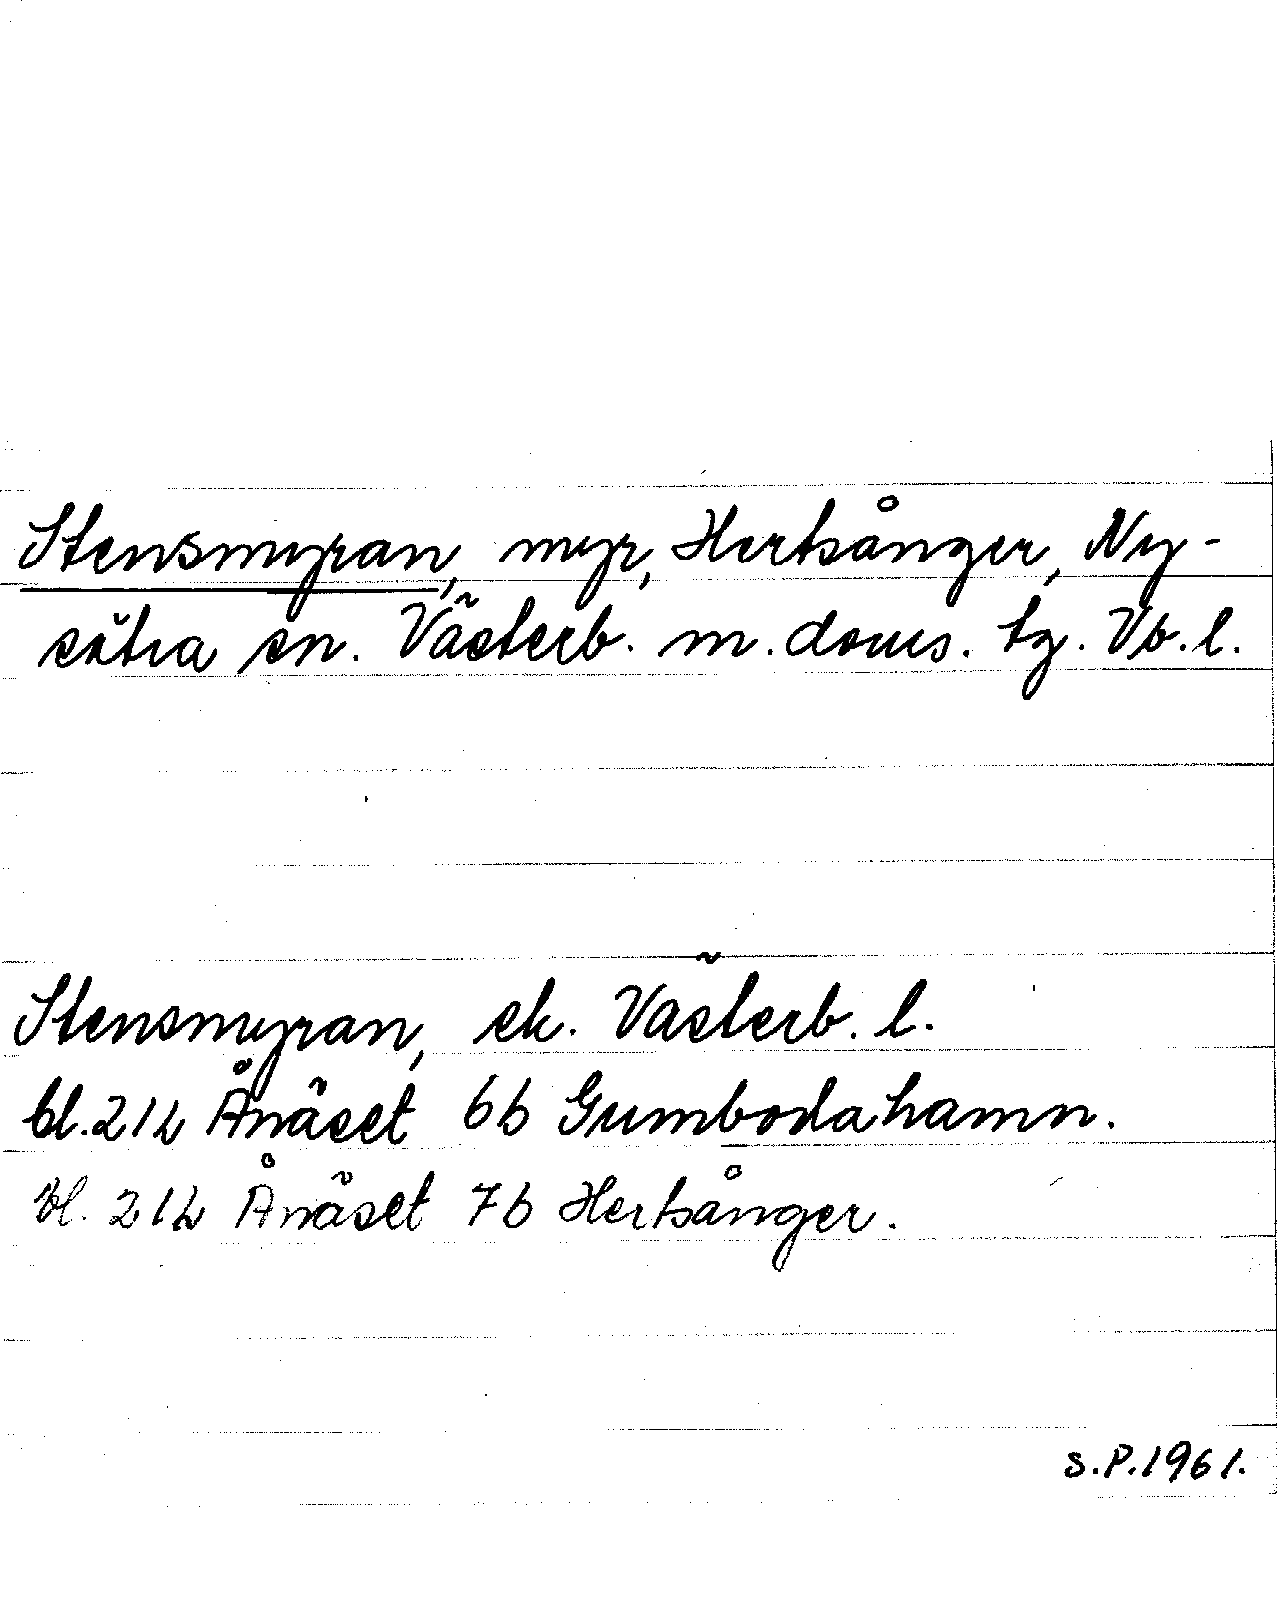 Stensmyran, myr, Hertsånger, Ny-
sätra sn. Västerb. m. doms. tg. Vb. l.
Stensmyran, ek. Västerb. l.
bl. 21L Ånäset 6b Gumbodahamn.
bl. 21L Ånäset 7b Hertsånger.
S.P. 1961.